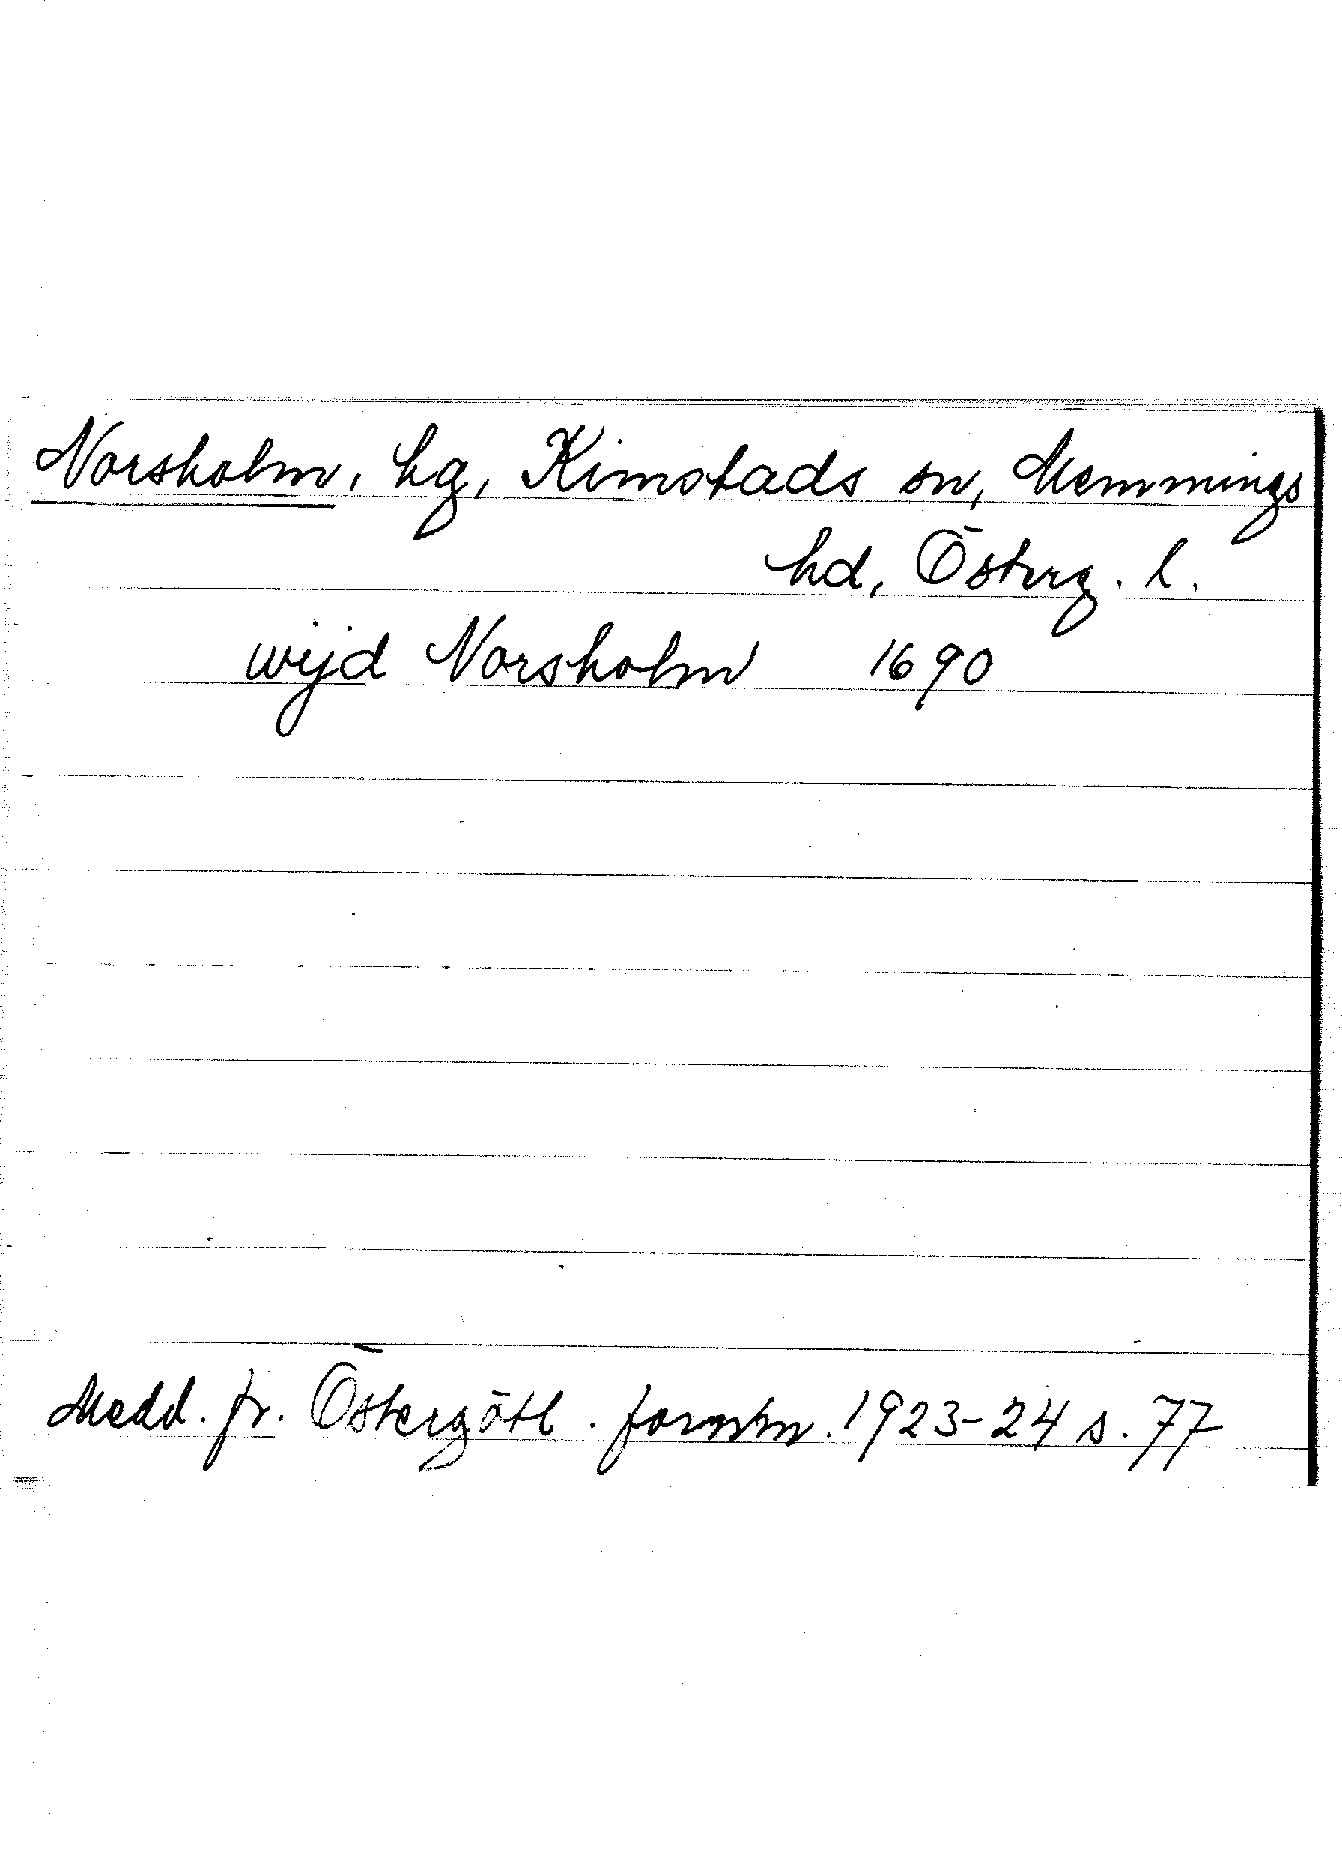 Norsholm, hg, Kimstads sn, Memmings
hd, Österg. l.
wijd Norsholm 1690
Medd. fr. Östergötl. fornm. 1923-24 s. 77